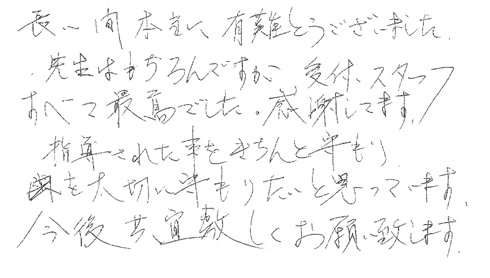 長い間本当に有難とうございました.
.先生はもちろんですが、受付、スタッフ
すべて最高でした。感謝してます!
指導された事をきちんと守もり
歯を大切に守もりたいと思っています。
今後共宜敷しくお願い致します.